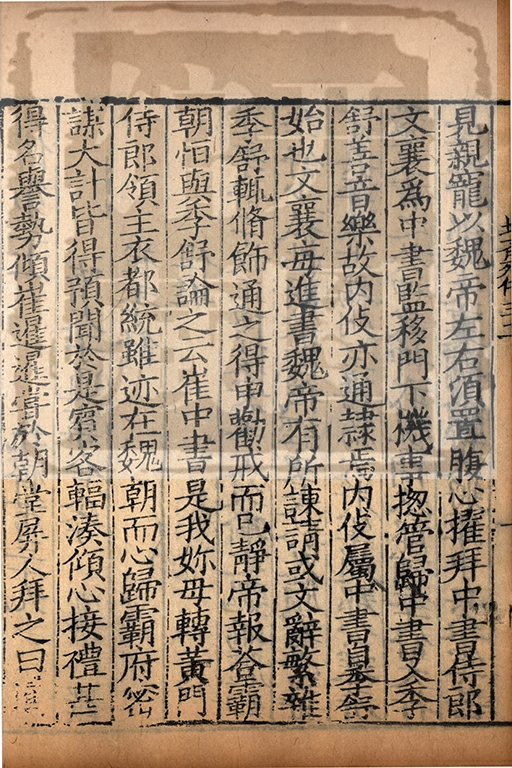 見親寵以魏帝左右湏置腹心擢拜中書侍郎
文襄爲中書監移門下機事揔管歸中書又季
舒善音樂故内伎亦通隷焉内伎屬中書自季舒
始也文襄每進書魏帝有所諫請或文辭繁雜
季舒輒脩飾通之得申勸戒而已靜帝報荅霸
朝恒與季舒論之云崔中書是我妳母轉黄門
侍郎領主衣都統雖迹在魏朝而心歸霸府密
謀大計皆得預聞於是賔客輻湊傾心接禮甚
得名譽勢傾崔暹暹甞於朝堂屏人拜之曰